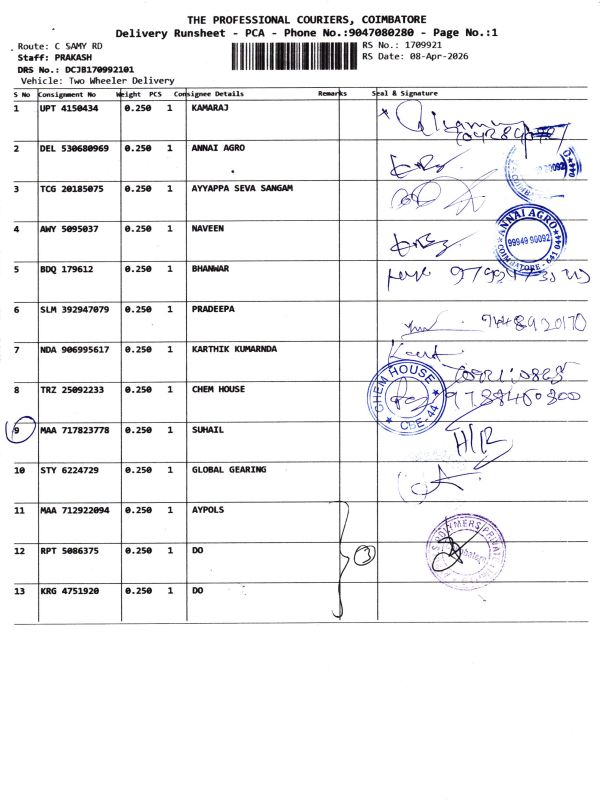 THE PROFESSIONAL COURIERS, COIMBATORE
Delivery Runsheet - PCA - Phone No.:9047080280 - Page No.:1
Route: C SAMY RD
RS No.: 1709921
Staff: PRAKASH
RS Date: 08-Apr-2026
DRS No.: DCJB170992101
Vehicle: Two Wheeler Delivery
S No Consignment No Weight PCS Consignee Details Remarks Seal & Signature
1 UPT 4150434 0.250 1 KAMARAJ
2 DEL 530680969 0.250 1 ANNAI AGRO
3 TCG 20185075 0.250 1 AYYAPPA SEVA SANGAM
4 AWY 5095037 0.250 1 NAVEEN
ANNAI AGRO
99949 90092
COIMBATORE - 641 044
5 BDQ 179612 0.250 1 BHANWAR
6 SLM 392947079 0.250 1 PRADEEPA
7 NDA 906995617 0.250 1 KARTHIK KUMARNDA
8 TRZ 25092233 0.250 1 CHEM HOUSE
CHEM HOUSE
CBE-44
9 MAA 717823778 0.250 1 SUHAIL
10 STY 6224729 0.250 1 GLOBAL GEARING
11 MAA 712922094 0.250 1 AYPOLS
12 RPT 5086375 0.250 1 DO 3
13 KRG 4751920 0.250 1 DO